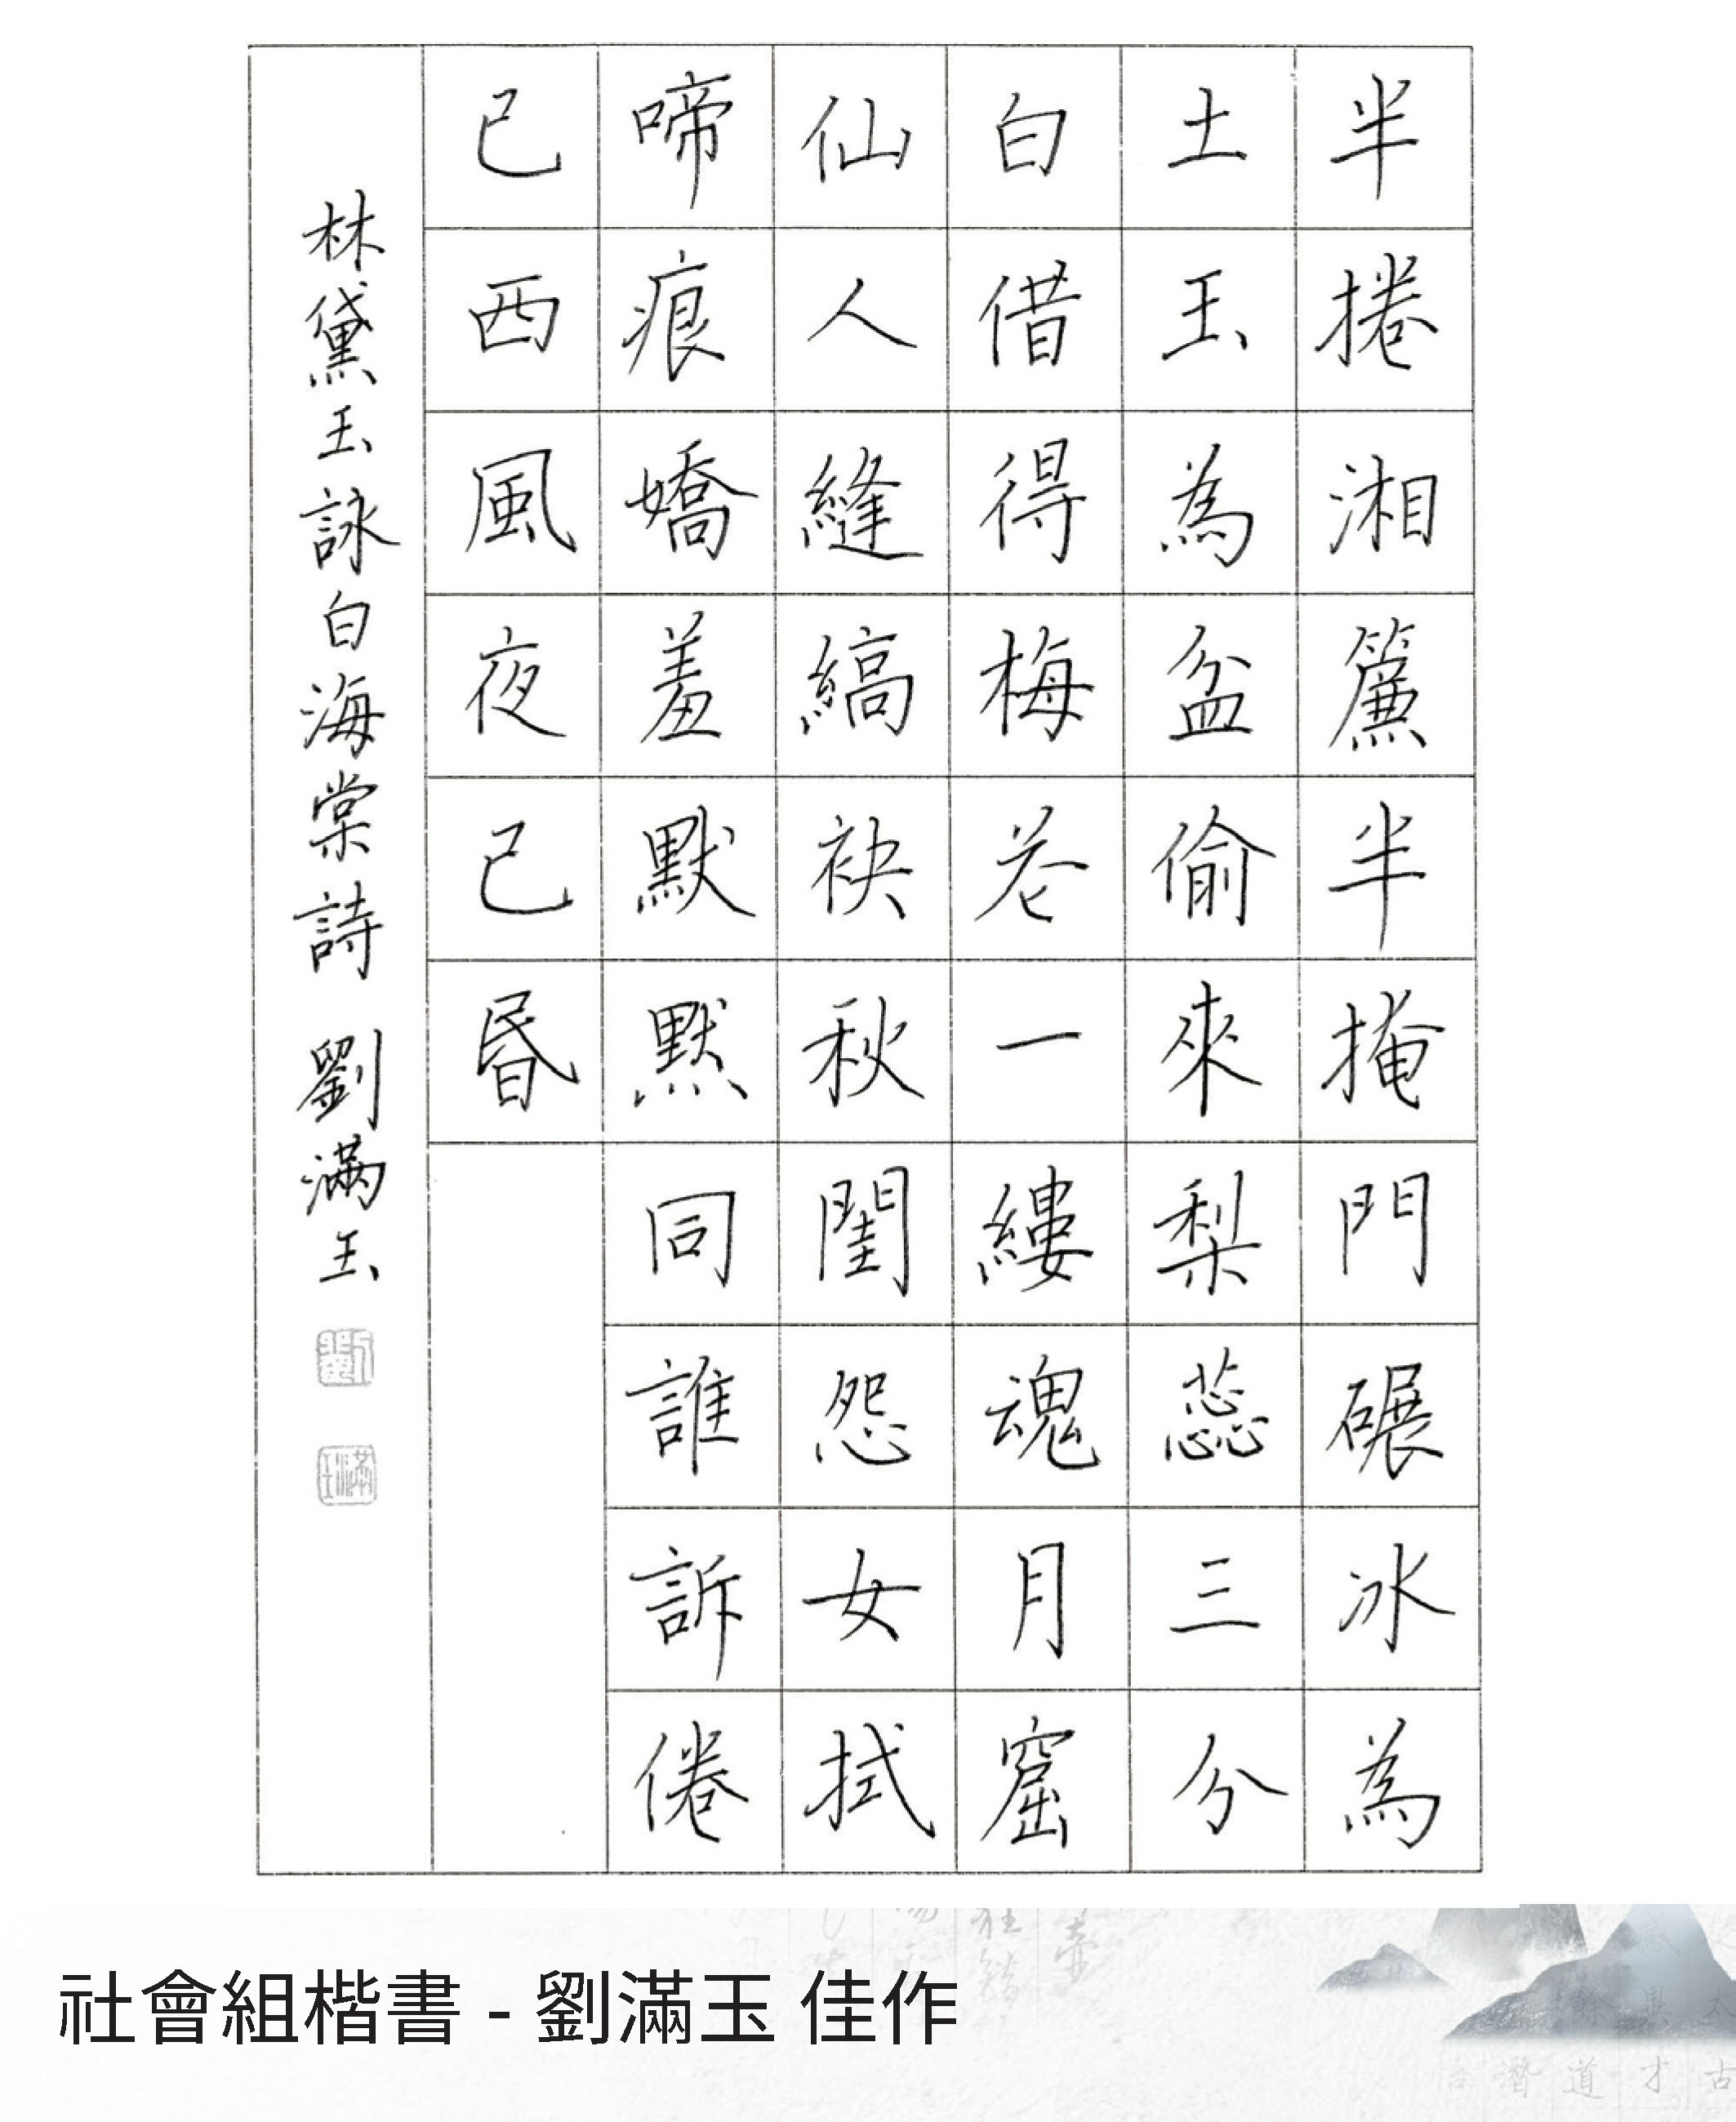 半捲湘簾半掩門碾冰為
土玉為盆偷來梨蕊三分
白借得梅花一縷魂月窟
仙人縫縞袂秋閨怨女拭
啼痕嬌羞默默同誰訴倦
已西風夜已昬
林黛玉詠白海棠詩 劉滿玉
劉
社會組楷書 - 劉滿玉 佳作